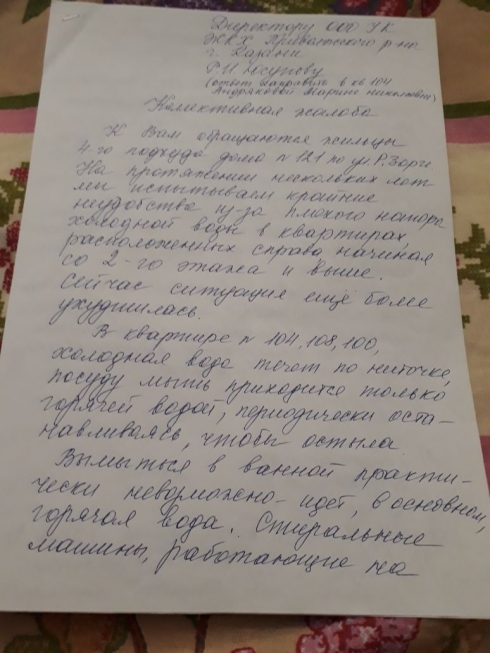 Директору ООО УК
ЖКХ Приволжского р-на
г. Казани
Р.И. Юсупову
(ответ направить в кв 104
Андряковой Марине Николаевне)
Колективная жалоба
К Вам обращаются жильцы
4-го подъезда дома № 121 по ул. Р. Зорге
На протяжении нескольких лет
мы испытываем крайние
неудобства из-за плохого напора
холодной воды в квартирах,
расположенных справа, начиная
со 2-го этажа и выше.
Сейчас ситуация ещё более
ухудшилась.
В квартире № 104, 108, 100,
холодная вода течет по ниточке,
посуду мыть приходится только
горячей водой, периодически оста-
навливаясь, чтобы остыла.
Вымыться в ванной практи-
чески невозможно - идет, в основном,
горячая вода. Стиральные
машины, работающие на